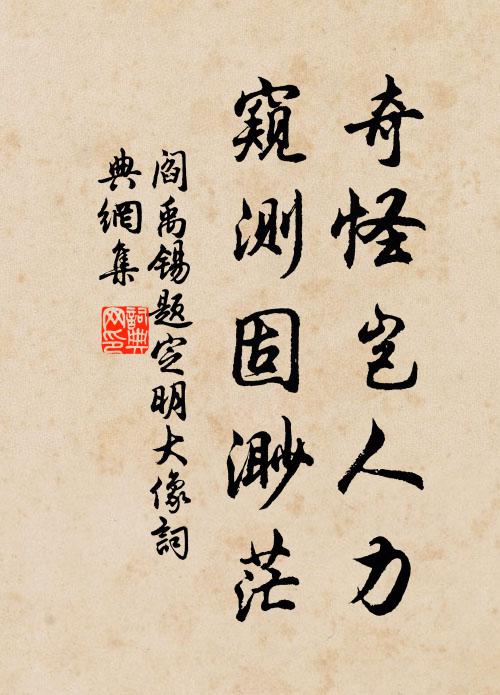 奇怪岂人力
窺測固渺茫
阎禹锡题定明大像詞
典網集
詞典
网印